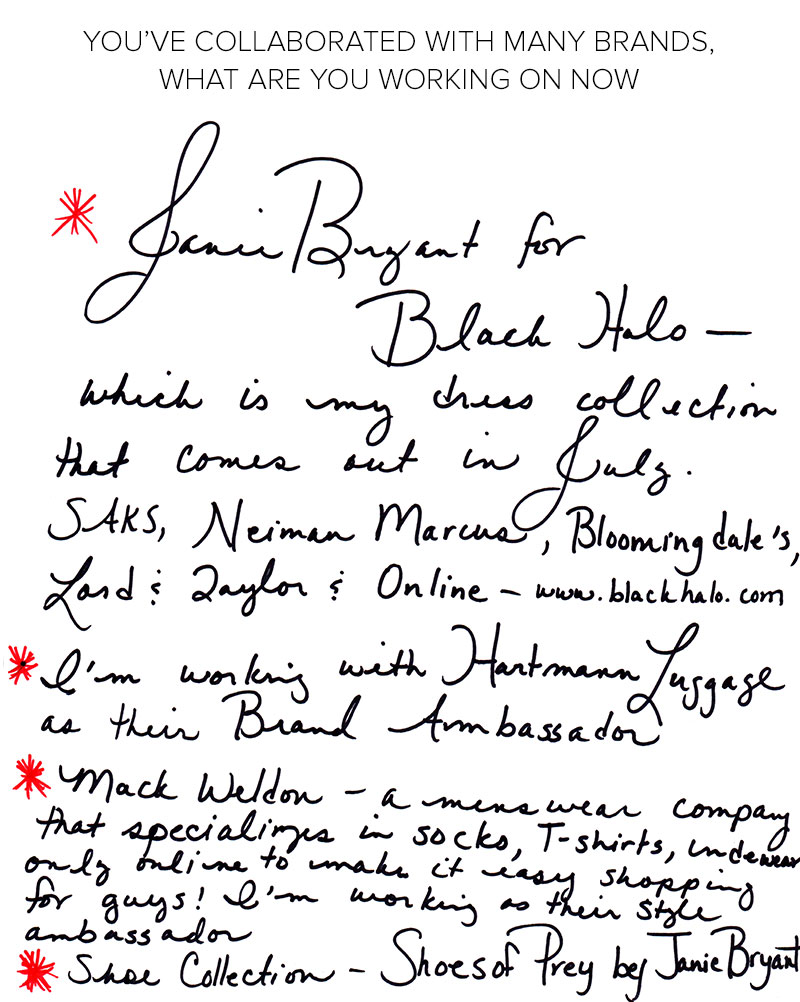 YOU'VE COLLABORATED WITH MANY BRANDS,
WHAT ARE YOU WORKING ON NOW
Janie Bryant for
Black Halo —
which is my dress collection
that comes out in July.
SAKS, Neiman Marcus, Bloomingdale's,
Lord & Taylor & Online – www.blackhalo.com
I'm working with Hartmann Luggage
as their Brand Ambassador
Mack Weldon – a menswear company
that specializes in socks, T-shirts, undewear
only online to make it easy shopping
for guys! I'm working as their style
ambassador
Shoe Collection – Shoes of Prey by Janie Bryant